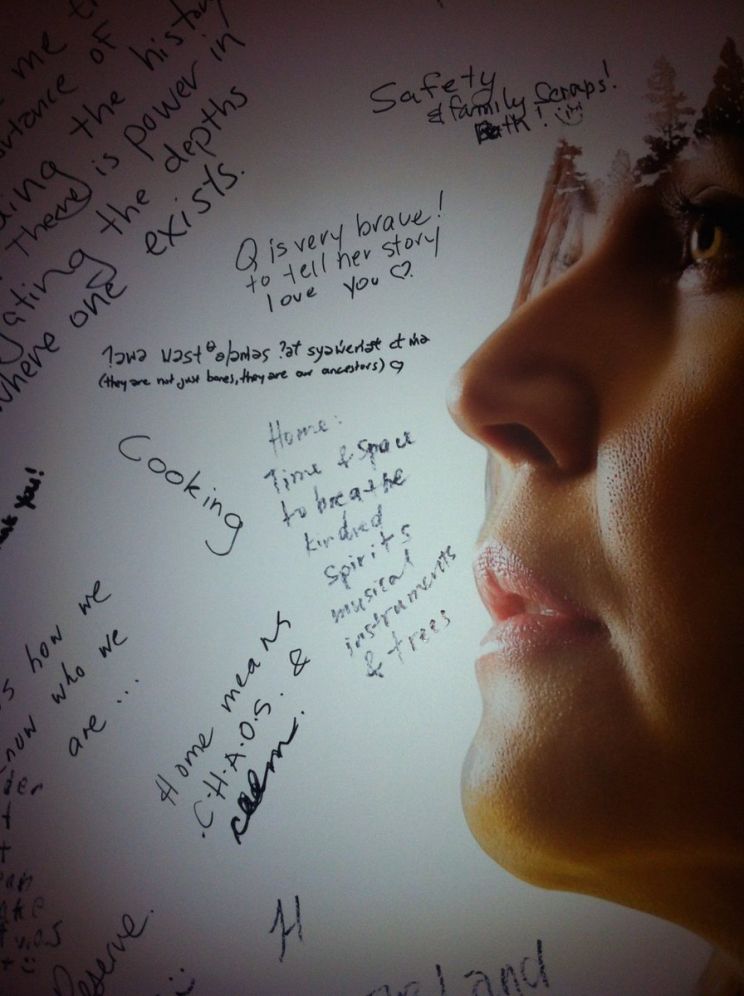 me
ortance of
ding the history
there is power in
ating the depths
where one exists.
Safety
& family Scraps!
Bath!
Q is very brave!
to tell her story
love you ♡.
(they are not just bones, they are our ancestors) ♡
Cooking
Home:
Time & space
to breathe
kindred
spirits
musical
instruments
& trees
you!
s how we
know who we
are ...
Home means
C.H.A.O.S. &
calm.
Deserve.
H
Land